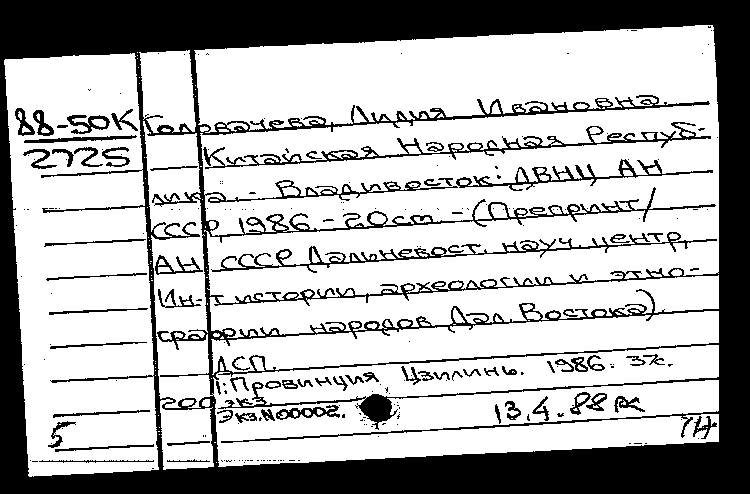 88-50К Головачева, Лидия Ивановна.
2725 Китайская Народная Респуб-
лика. - Владивосток: ДВНЦ АН
СССР, 1986. - 20 cm. - (Препринт/
АН СССР Дальневост. науч. центр,
Ин-т истории, археологии и этно-
графии народов Дал. Востока).
ДСП.
1: Провинция Цзилинь. 1986. 37с.
200 экз.
Экз.N00002.
5 13.4.88